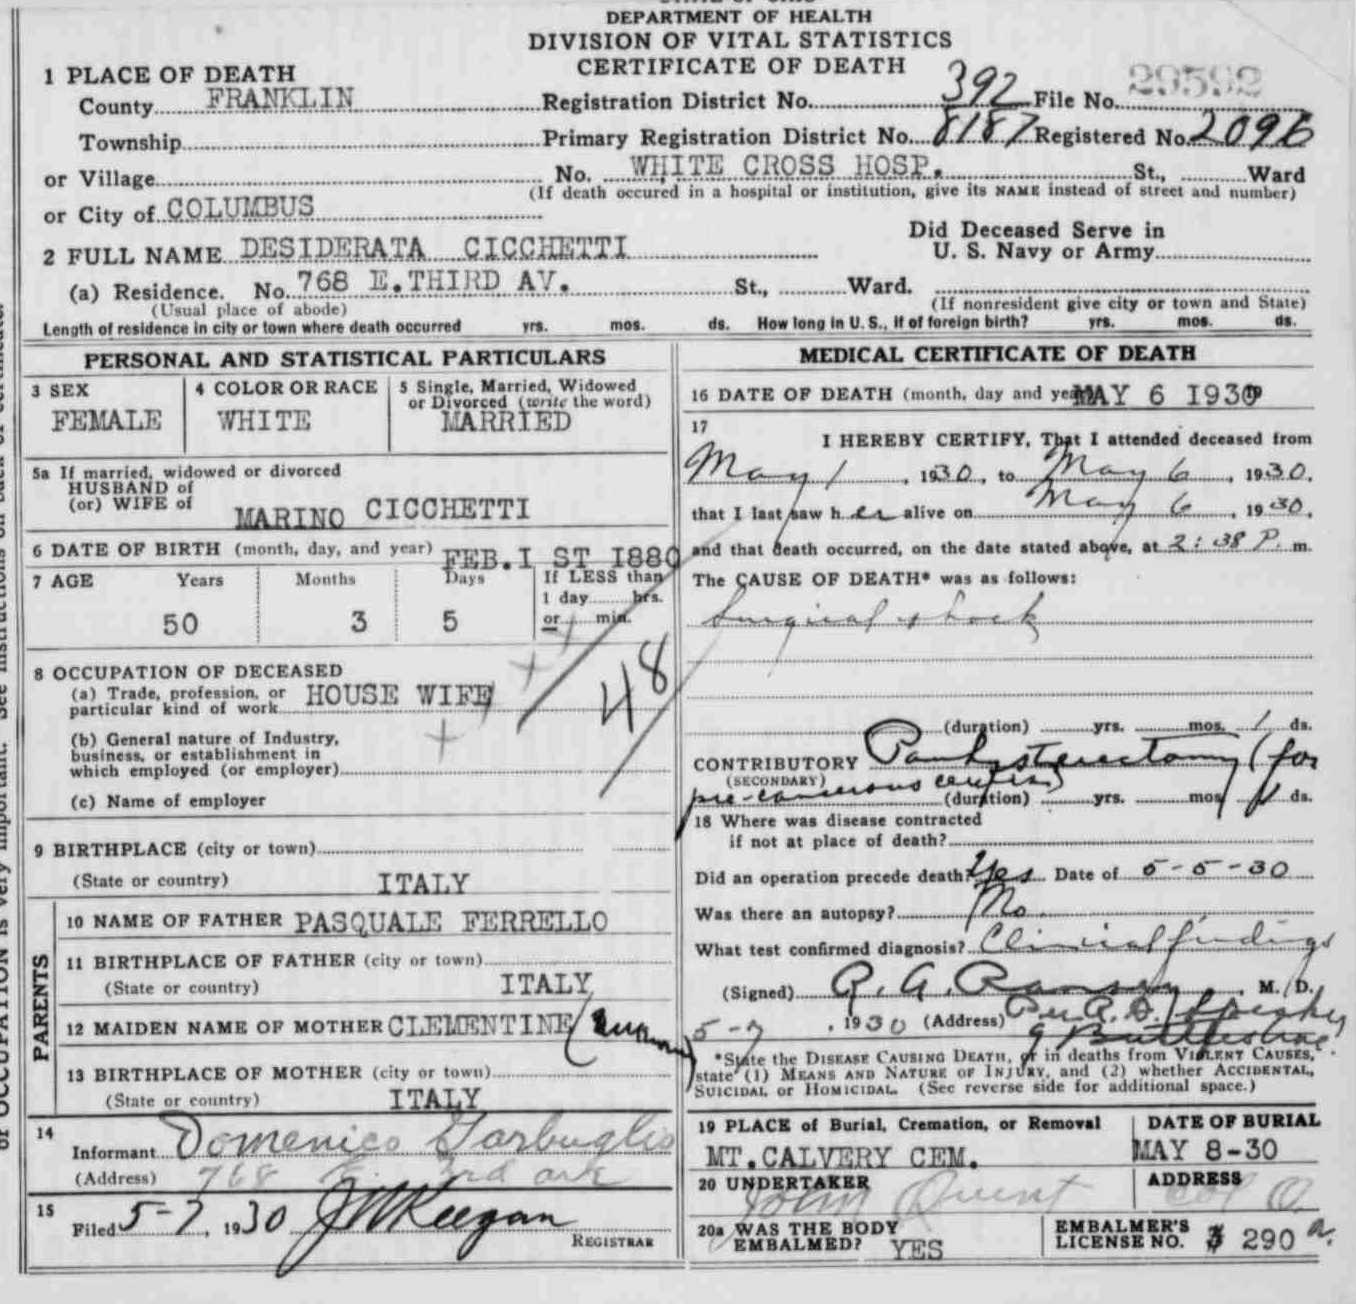 DEPARTMENT OF HEALTH
DIVISION OF VITAL STATISTICS
CERTIFICATE OF DEATH
1 PLACE OF DEATH
County FRANKLIN Registration District No. 392 File No. 29592
Township Primary Registration District No. 8187 Registered No. 2096
or Village No. WHITE CROSS HOSP. St., Ward
(If death occured in a hospital or institution, give its NAME instead of street and number)
or City of COLUMBUS
Did Deceased Serve in
U. S. Navy or Army
2 FULL NAME DESIDERATA CICCHETTI
(a) Residence. No. 768 E.THIRD AV. St., Ward.
(Usual place of abode) (If nonresident give city or town and State)
Length of residence in city or town where death occurred yrs. mos. ds. How long in U. S., if of foreign birth? yrs. mos. ds.
PERSONAL AND STATISTICAL PARTICULARS
3 SEX
FEMALE
4 COLOR OR RACE
WHITE
5 Single, Married, Widowed
or Divorced (write the word)
MARRIED
5a If married, widowed or divorced
HUSBAND of
(or) WIFE of
MARINO CICCHETTI
6 DATE OF BIRTH (month, day, and year) FEB.I ST I880
7 AGE Years Months Days If LESS than
1 day hrs.
or min.
50 3 5
48
8 OCCUPATION OF DECEASED
(a) Trade, profession, or
particular kind of work HOUSE WIFE
(b) General nature of Industry,
business, or establishment in
which employed (or employer)
(c) Name of employer
9 BIRTHPLACE (city or town)
(State or country) ITALY
PARENTS
10 NAME OF FATHER PASQUALE FERRELLO
11 BIRTHPLACE OF FATHER (city or town)
(State or country) ITALY
12 MAIDEN NAME OF MOTHER CLEMENTINE
13 BIRTHPLACE OF MOTHER (city or town)
(State or country) ITALY
14
Informant Domenico Garbuglio
(Address) 768 E. 3rd ave
15
Filed 5-7, 1930 J W Keegan
REGISTRAR
MEDICAL CERTIFICATE OF DEATH
16 DATE OF DEATH (month, day and year) MAY 6 1930
17
I HEREBY CERTIFY, That I attended deceased from
May 1, 1930, to May 6, 1930,
that I last saw her alive on May 6, 1930,
and that death occurred, on the date stated above, at 2:38 P. m.
The CAUSE OF DEATH* was as follows:
Surgical shock
(duration) yrs. mos. 1 ds.
CONTRIBUTORY Panhysterectomy (for
(SECONDARY)
pre-cancerous cervix)
(duration) yrs. mos. 1 ds.
18 Where was disease contracted
if not at place of death?
Did an operation precede death? Yes Date of 5-5-30
Was there an autopsy? No
What test confirmed diagnosis? Clinical findings
(Signed) R. A. Ramsey, M. D.
5-7, 1930 (Address) Per R. D.
*State the DISEASE CAUSING DEATH, or in deaths from VIOLENT CAUSES,
state (1) MEANS AND NATURE OF INJURY, and (2) whether ACCIDENTAL,
SUICIDAL or HOMICIDAL. (See reverse side for additional space.)
19 PLACE of Burial, Cremation, or Removal DATE OF BURIAL
MT.CALVERY CEM. MAY 8-30
20 UNDERTAKER ADDRESS
John Quint Col O.
20a WAS THE BODY
EMBALMED? YES
EMBALMER'S
LICENSE NO. 290 a.